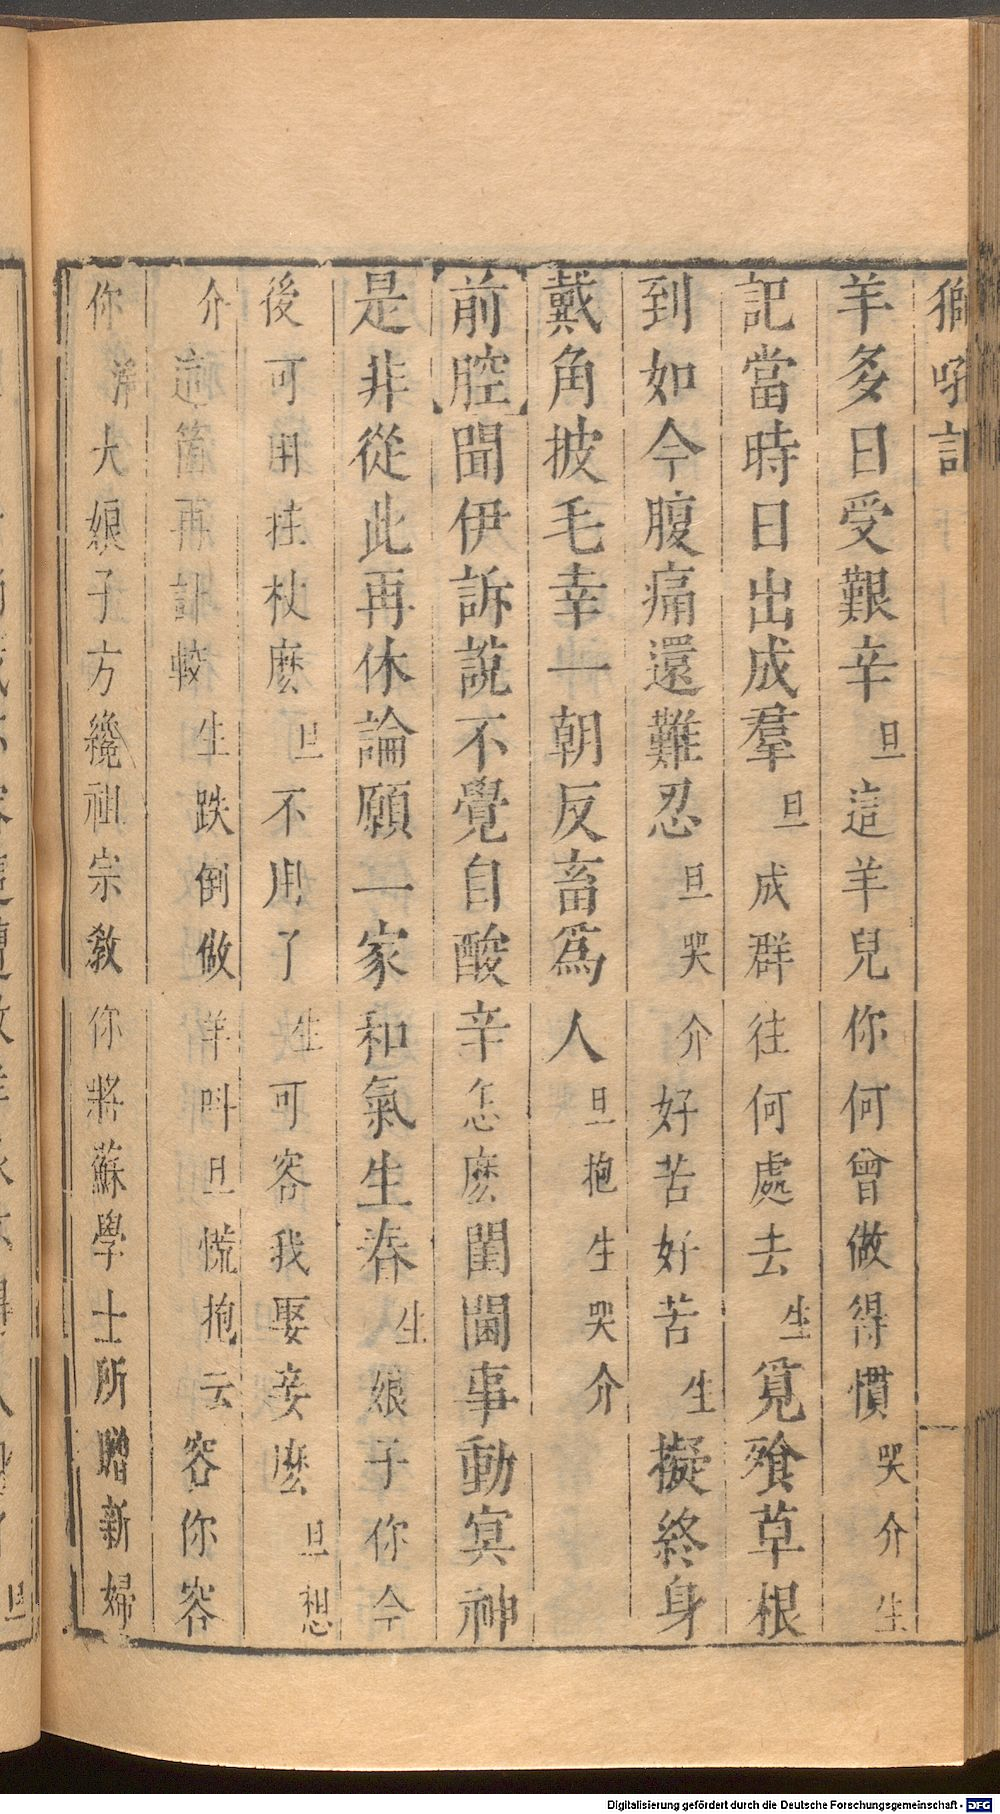 獅吼記
羊多日受艱辛旦這羊兒你何曾做得慣哭介生
記當時日出成羣旦成群往何處去生覓飱草根
到如今腹痛還難忍旦哭介好苦好苦生擬終身
戴角披毛幸一朝反畜爲人旦抱生哭介
前腔聞伊訴說不覺自酸辛怎麽閨閫事動㝠神
是非從此再休論願一家和氣生春生娘子你今
後可用拄杖麽旦不用了生可容我娶妾麽旦想
介這箇再計較生跌倒做羊叫旦慌抱云容你容
你淨大娘子方纔祖宗敎你將蘇學士所贈新婦
Digitalisierung gefördert durch die Deutsche Forschungsgemeinschaft - DFG